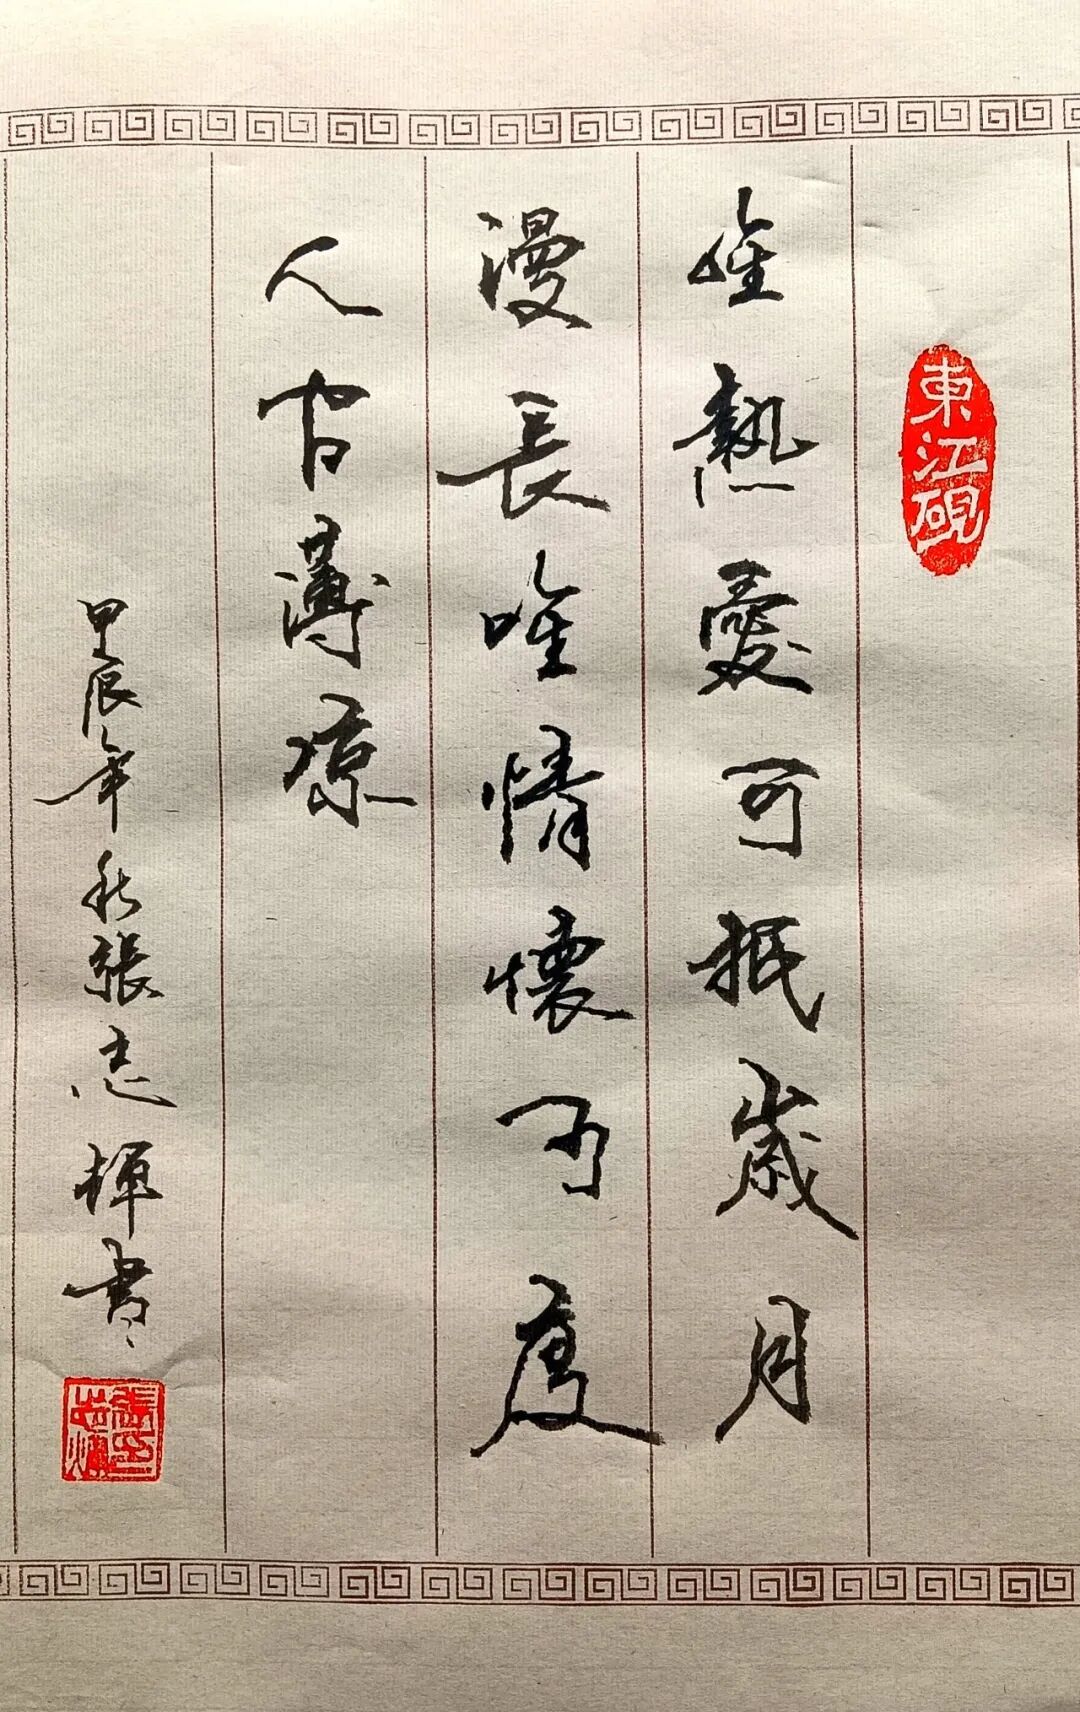 東江硯
唯熱愛可抵歲月
漫長唯情懷可度
人間薄涼
甲辰年秋張志煇書